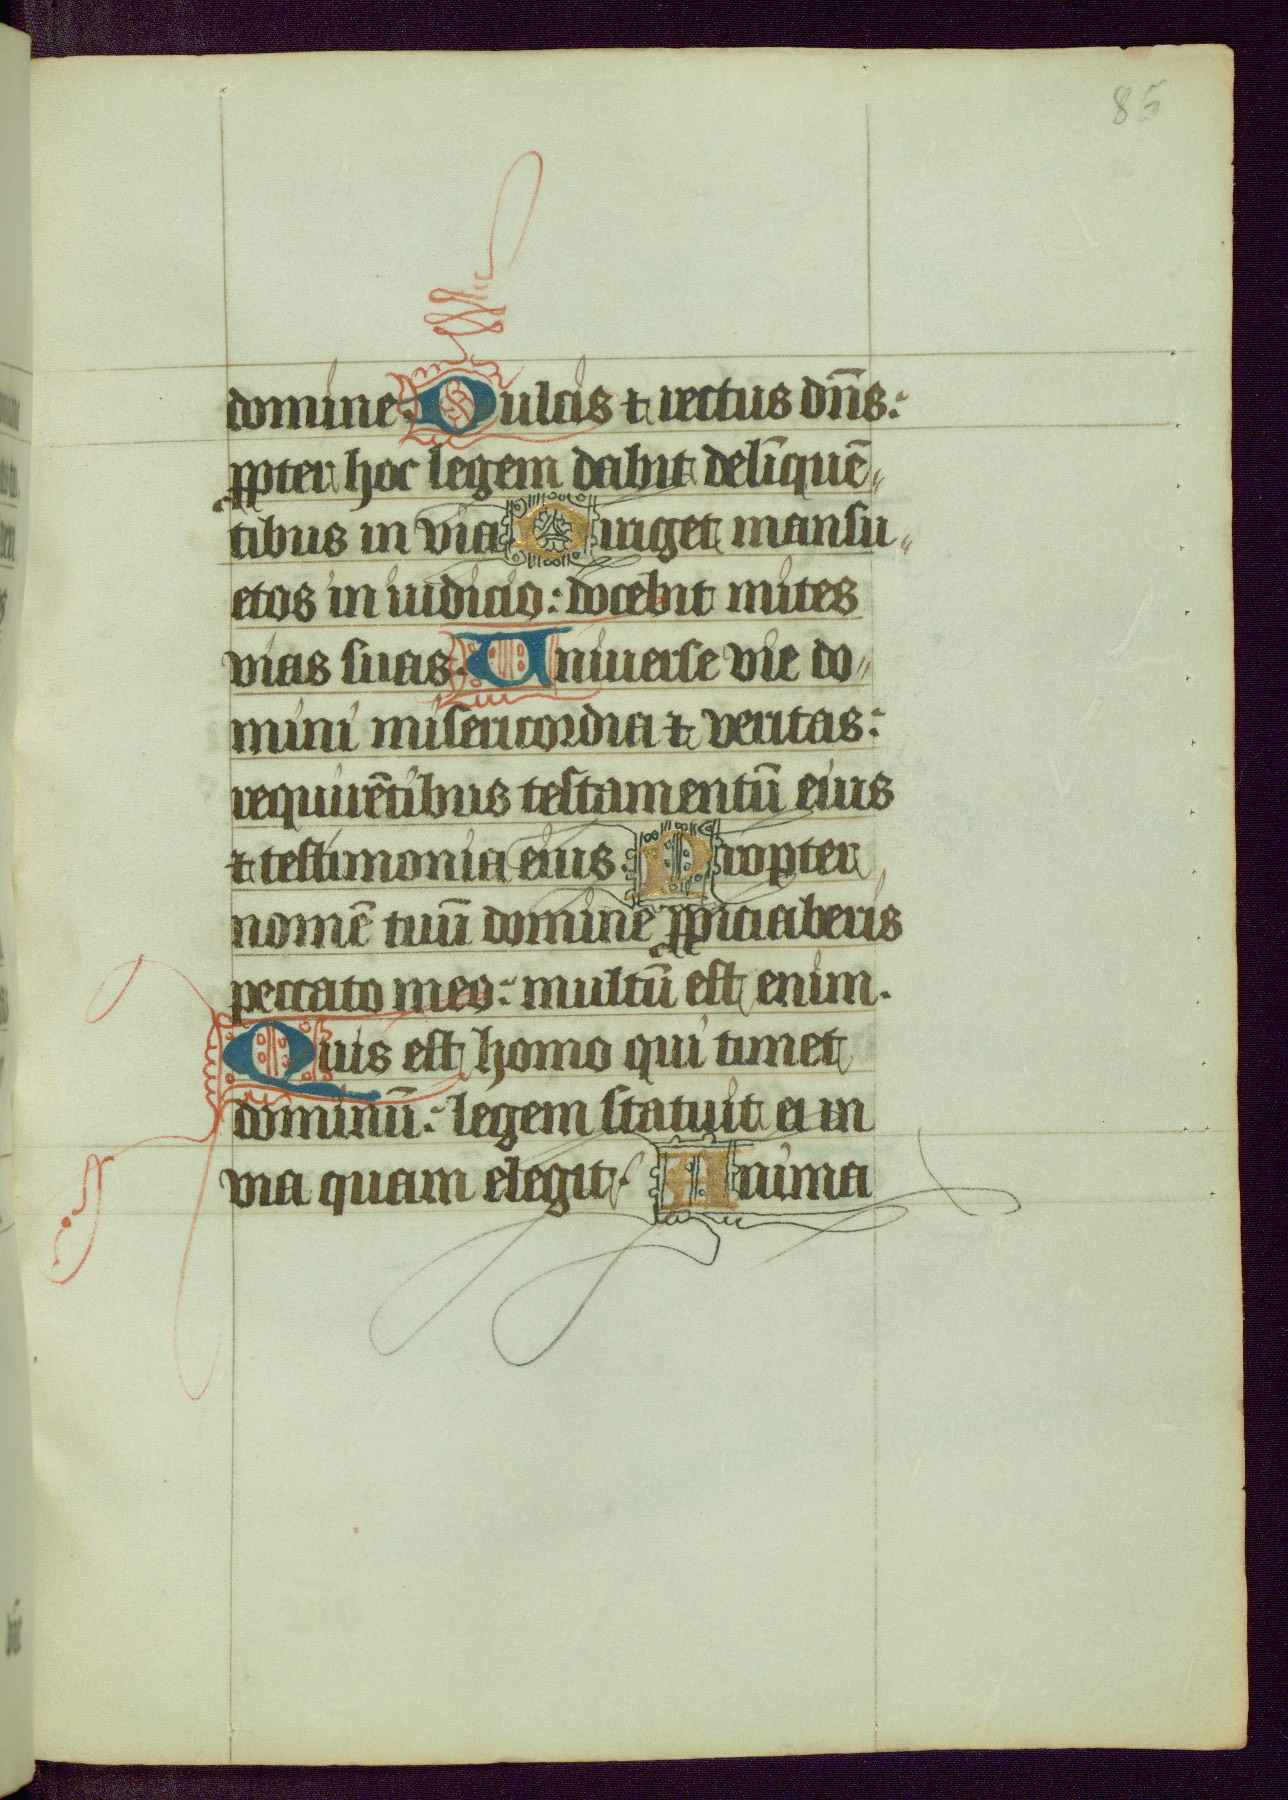 85
domine. Dulcis ⁊ rectus dn̄s:
ꝓpter hoc legem dabit deli̅quē„
tibus in via Diriget mansu„
etos in iudicio: docebit mites
vias suas. Uniuerse vie do„
mini misericordia ⁊ veritas:
requirētibus testamentū eius
⁊ testimonia eius. Propter
nomē tuū domine ꝓpiciaberis
peccato meo: multū est enim.
Quis est homo qui timet
dominū: legem statuit ei in
via quam elegit Anima